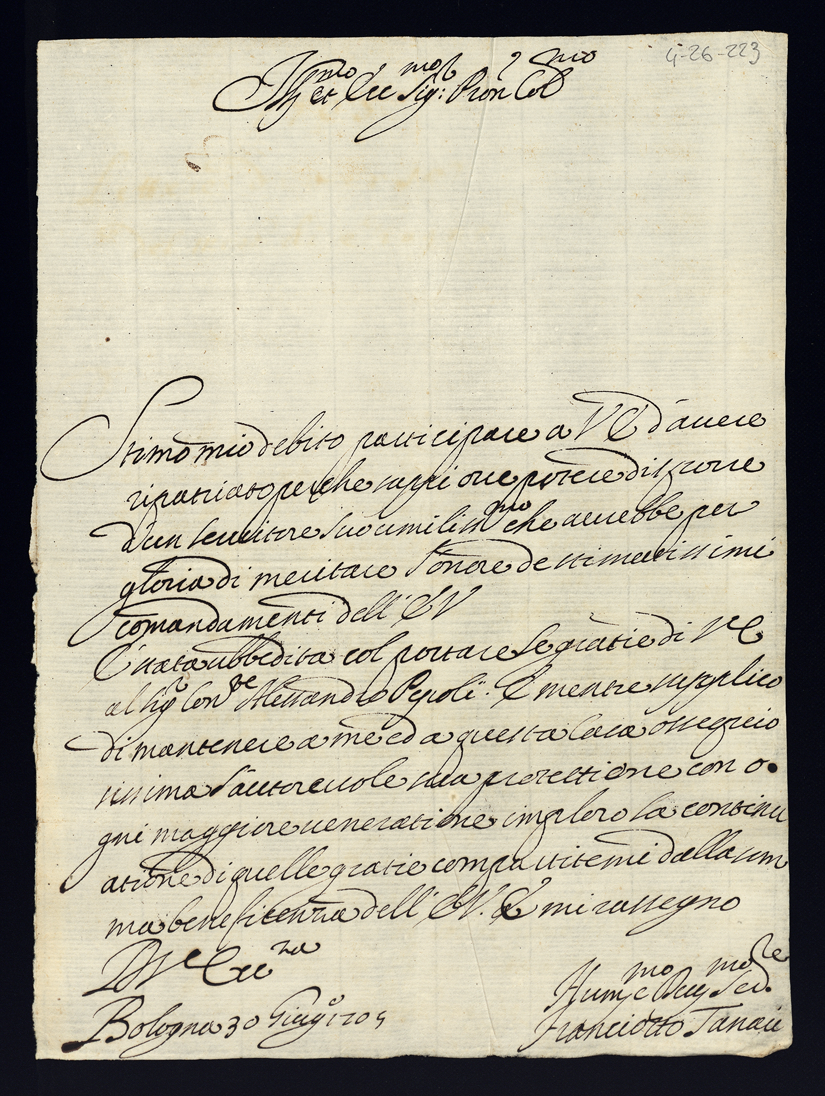 4-26-223
Ill.mo et Ecc.mo Sig.r Pron Col.mo
Stimo mio debito participare a V E d'auere
ripatriato perche sappi oue potere disporre
d'un seruitore suo umiliss.mo che auerebbe per
gloria di meritare l'onore de stimatissimi
comandamenti dell'E V
È stata ubbedita col portare le gratie di V.ra E
al Sig.r Con.te Alessandro Pepoli. E mentre supplico
di mantenere a me ed a questa Casa ossequio
sissima l'autoreuole sua protettione con o
gni maggiore ueneratione imploro la continu
atione di quelle gratie compartitemi dalla som
ma beneficenza dell'E V. E mi rassegno
D V.e Ecc.za
Bologna 30 Giug.o 1705
Hum.mo e Deu.mo Ser.re
Franciotto Tanari